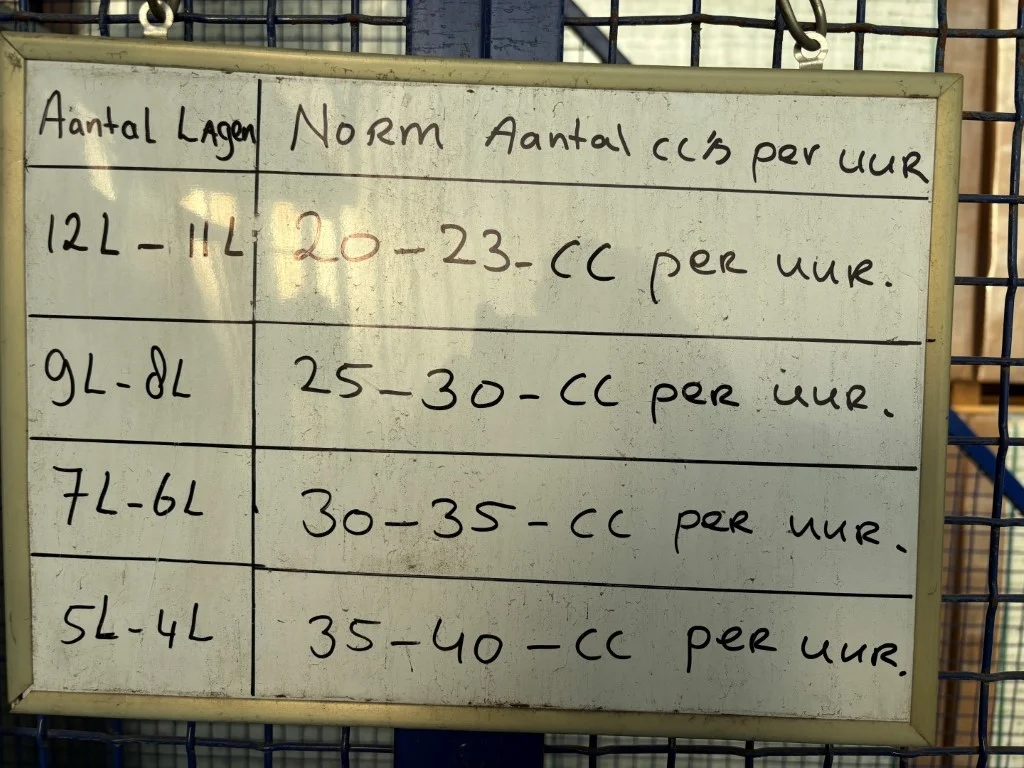 Aantal Lagen Norm Aantal cc's per uur
12L - 11L 20-23- cc per uur.
9L-8L 25-30- cc per uur.
7L-6L 30-35- cc per uur.
5L-4L 35-40-cc per uur.